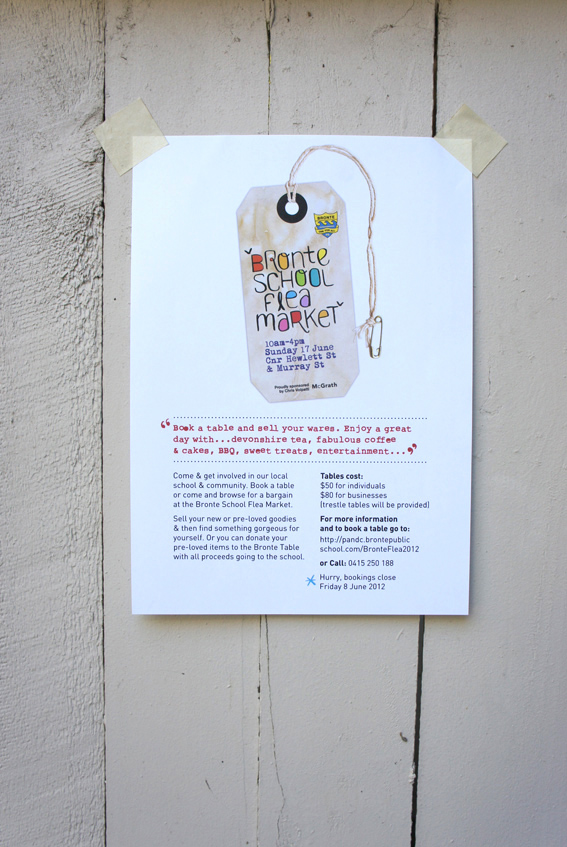 BRONTE
BRonte
SCHOOL
flea
maRKeT
10am-4pm
Sunday 17 June
Cnr Hewlett St
& Murray St
Proudly sponsored
by Chris
McGrath
“Book a table and sell your wares. Enjoy a great
day with...devonshire tea, fabulous coffee
& cakes, BBQ, sweet treats, entertainment...”
Come & get involved in our local
school & community. Book a table
or come and browse for a bargain
at the Bronte School Flea Market.
Sell your new or pre-loved goodies
& then find something gorgeous for
yourself. Or you can donate your
pre-loved items to the Bronte Table
with all proceeds going to the school.
Tables cost:
$50 for individuals
$80 for businesses
(trestle tables will be provided)
For more information
and to book a table go to:
http://pandc.brontepublic
school.com/BronteFlea2012
or Call: 0415 250 188
Hurry, bookings close
Friday 8 June 2012